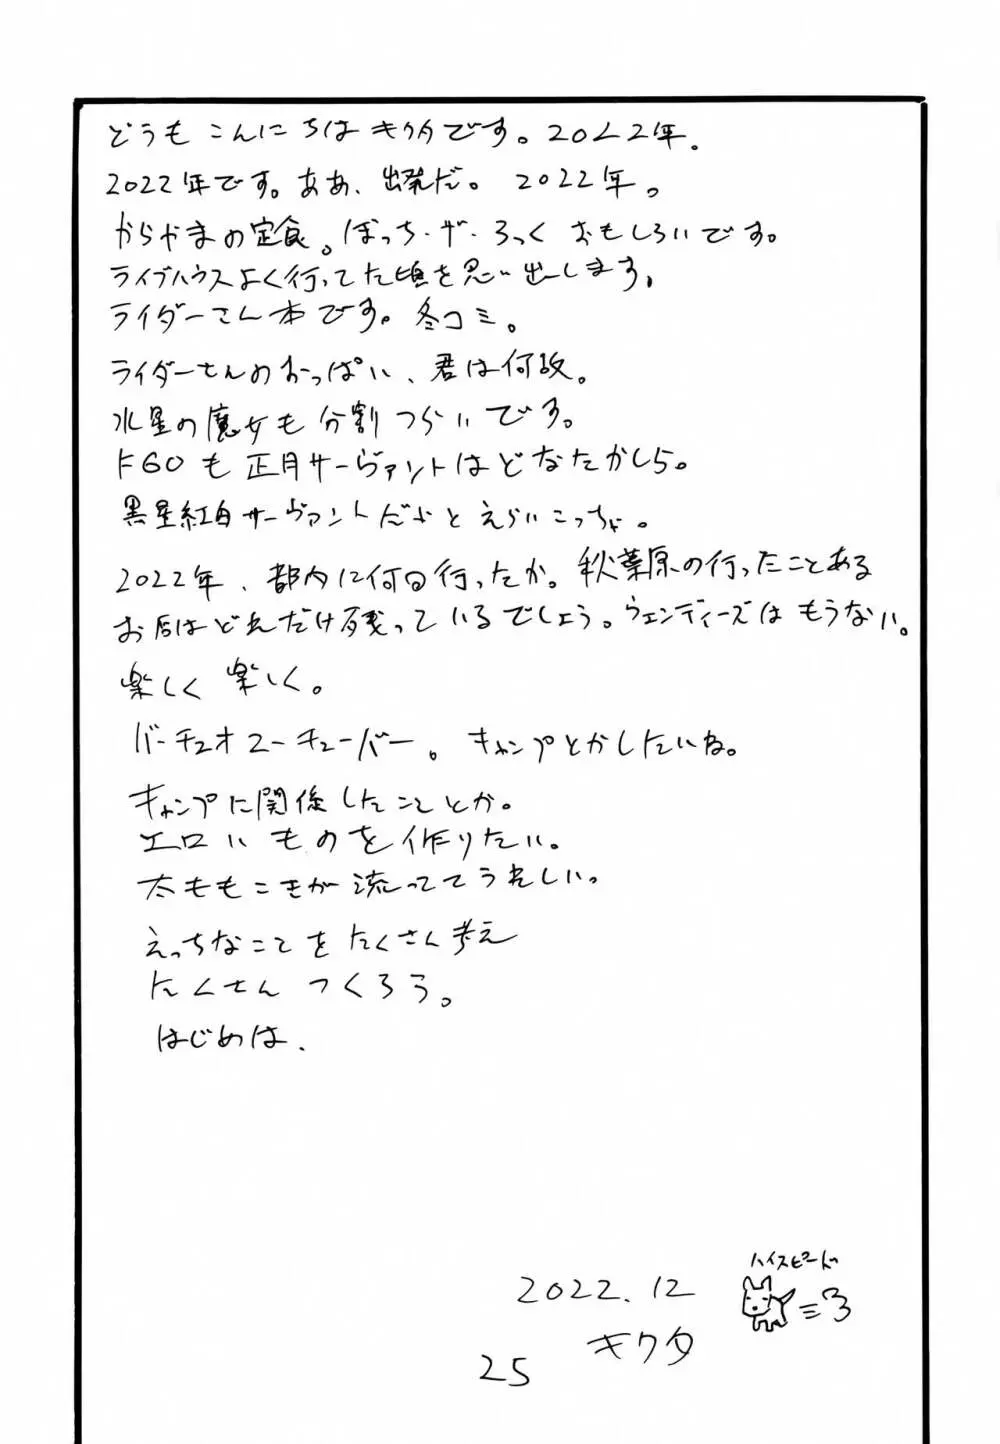 どうも こんにちは キクタです。2022年.
2022年です。ああ、出発だ。 2022年。
からやまの定食。ぼっち・ザ・ろっく おもしろいです。
ライブハウスよく行ってた頃を思い出します。
ライダーさん本です。冬コミ。
ライダーさんのおっぱい、君は何故。
水星の魔女も 分割 つらいです。
FGOも 正月サーヴァントはどなたかしら。
黒星紅白サーヴァントだよと えらいこっちゃ。
2022年、都内に何回行ったか。秋葉原の行ったことある
お店はどれだけ残っているでしょう。ウェンディーズは もうない。
楽しく 楽しく。
バーチュオユーチューバー。 キャンプとかしたいね。
キャンプに関係したことか。
エロい ものを 作りたい。
太ももこきが 流っててうれしい。
えっちなことを たくさん考え
たくさん つくろう。
はじめは.
ハイスピード
2022.12
キクタ
25